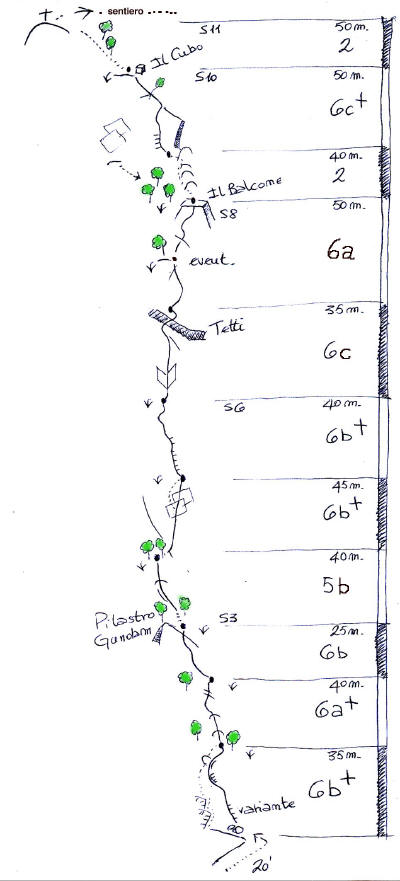 + → - sentiero
S11 50 m.
2
Il Cubo
S10 50 m.
6c+
40 m.
2
Il Balcone
S8 50 m.
6a
event.
35 m.
Tetti
6c
S6 40 m.
6b+
45 m.
6b+
40 m.
5b
Pilastro
Gundam
S3
25 m.
6b
40 m.
6a+
35 m.
6b+
variante
20'